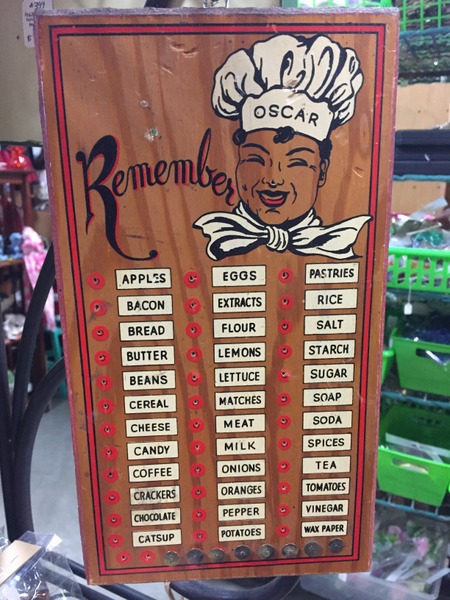 OSCAR
Remember
APPLES EGGS PASTRIES
BACON EXTRACTS RICE
BREAD FLOUR SALT
BUTTER LEMONS STARCH
BEANS LETTUCE SUGAR
CEREAL MATCHES SOAP
CHEESE MEAT SODA
CANDY MILK SPICES
COFFEE ONIONS TEA
CRACKERS ORANGES TOMATOES
CHOCOLATE PEPPER VINEGAR
CATSUP POTATOES WAX PAPER